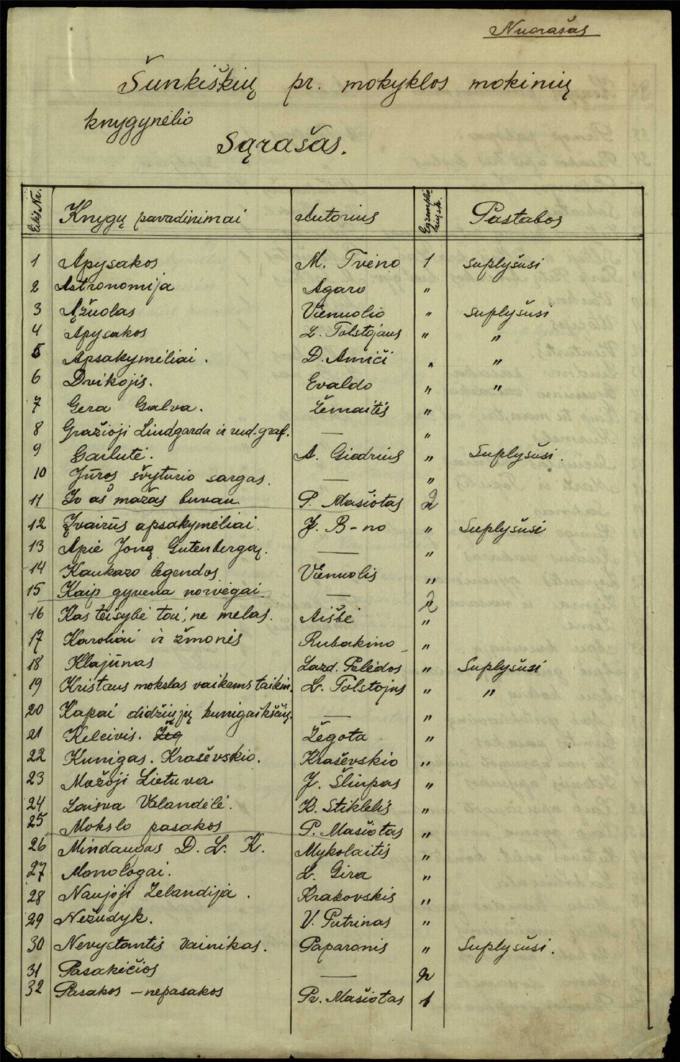 Nuorašas
Šunkiškių pr. mokyklos mokinių
knygynėlio
Sąrašas.
Eilės Nr. Knygų pavadinimai Autorius Egzempl. Pastabos
1 Apysakos M. Tveno 1 suplyšusi
2 Astronomija Agaro "
3 Ąžuolas Vienuolio " suplyšusi
4 Apysakos L. Tolstojaus " "
5 Apsakymėliai. D. Amiči " "
6 Dvikojis. Evaldo " "
7 Gera Galva. Žemaitis "
8 Gražioji Lindgarda ir rud. graf. — "
9 Gailutė. A. Giedrius " Suplyšusi.
10 Jūros švyturio sargas. — "
11 Jo aš mažas buvau P. Mašiotas 2
12 Įvairūs apsakymėliai. J. B-no " Suplyšusi
13 Apie Joną Gutenbergą. — "
14 Kaukazo legendos Vienuolis "
15 Kaip gyvena norvegai. — 2
16 Kas teisybė tai, ne melas. Aišbė "
17 Karoliai ir žmonės Rubakino "
18 Klajūnas Lazd. Pelėdos " Suplyšusi
19 Kristaus mokslas vaikams taikin. L. Tolstojus " "
20 Kapai didžiųjų kunigaikščių — "
21 Keleivis. Žeg Žegota "
22 Kunigas. Kraševskio. Kraševskio "
23 Mažoji Lietuva J. Šliupas "
24 Laisva Valandėlė. K. Stiklelis "
25 Mokslo pasakos P. Mašiotas "
26 Mindaugas D. L. K. Mykolaitis "
27 Monologai. L. Gira "
28 Naujoji Zelandija. Krakovskis "
29 Nežudyk. V. Putrinas "
30 Nevystantis Vainikas. Paparonis " Suplyšusi.
31 Pasakėčios — 2
32 Pasakos - nepasakos Pr. Mašiotas 1